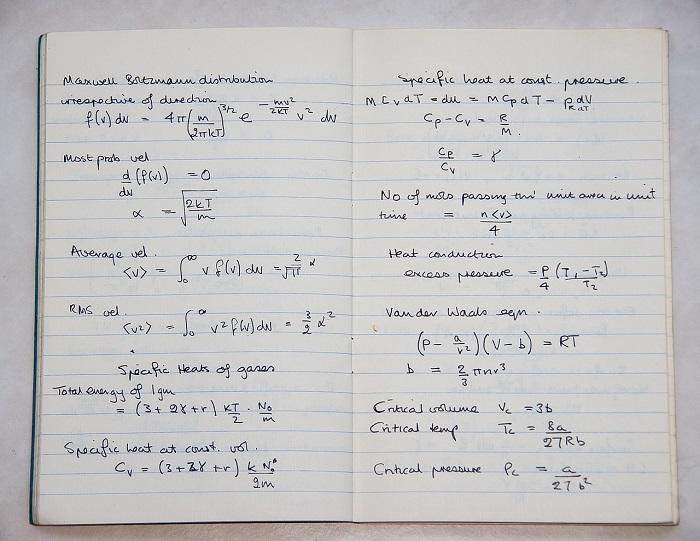 Maxwell Boltzmann distribution
irrespective of direction
f(v) dv = 4π (m/2πkT)^3/2 e^-mv²/2kT v² dv
Most prob vel
d/dv (f(v)) = 0
α = √(2kT/m)
Average vel.
<v> = ∫₀^∞ v f(v) dv = 2/√π α
RMS vel.
<v²> = ∫₀^∞ v² f(v) dv = 3/2 α²
Specific Heats of gases
Total energy of 1gm
= (3 + 2γ + r) kT/2 · N₀/m
Specific heat at const. vol.
Cv = (3 + 2γ + r) k N₀/2m
Specific heat at const. pressure.
M Cv dT = du = M Cp dT - p dV
R dT
Cp - Cv = R/M.
Cp/Cv = γ
No of mols passing thro' unit area in unit
time = n<v>/4
Heat conduction
excess pressure = P/4 (T₁-T₂)/T₂
Van der Waals eqn.
(P - a/v²)(V - b) = RT
b = 2/3 πnr³
Critical volume Vc = 3b
Critical temp Tc = 8a/27Rb
Critical pressure Pc = a/27b²